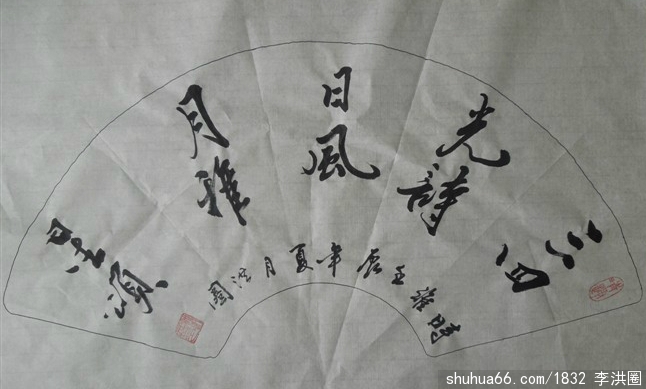 三四
光詩
日風
月雅
星頌
時維壬辰年夏月洪圈
shuhua66.com/1832 李洪圈